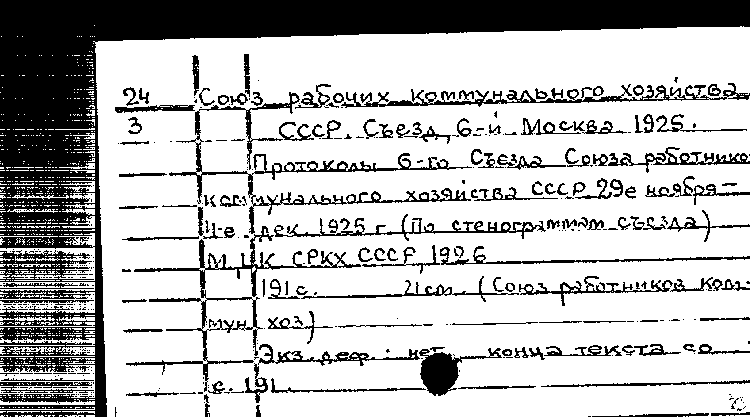 24 Союз рабочих коммунального хозяйства
3 СССР. Съезд, 6-й. Москва. 1925.
Протоколы 6-го Съезда Союза работнико
коммунального хозяйства СССР 29е ноября-
11-е дек. 1925 г. (По стенограммам съезда)
М, ЦК СРКХ СССР, 1926
191 с. 21 см. (Союз работников ком-
мун. хоз)
Экз. деф.: нет конца текста со
с. 191.